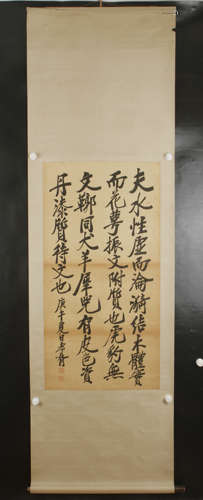 夫水性虛而淪漪結木體實
而花萼振文附質也虎豹無
文鞹同犬羊犀兕有皮色資
丹漆質待文也 庚午夏日